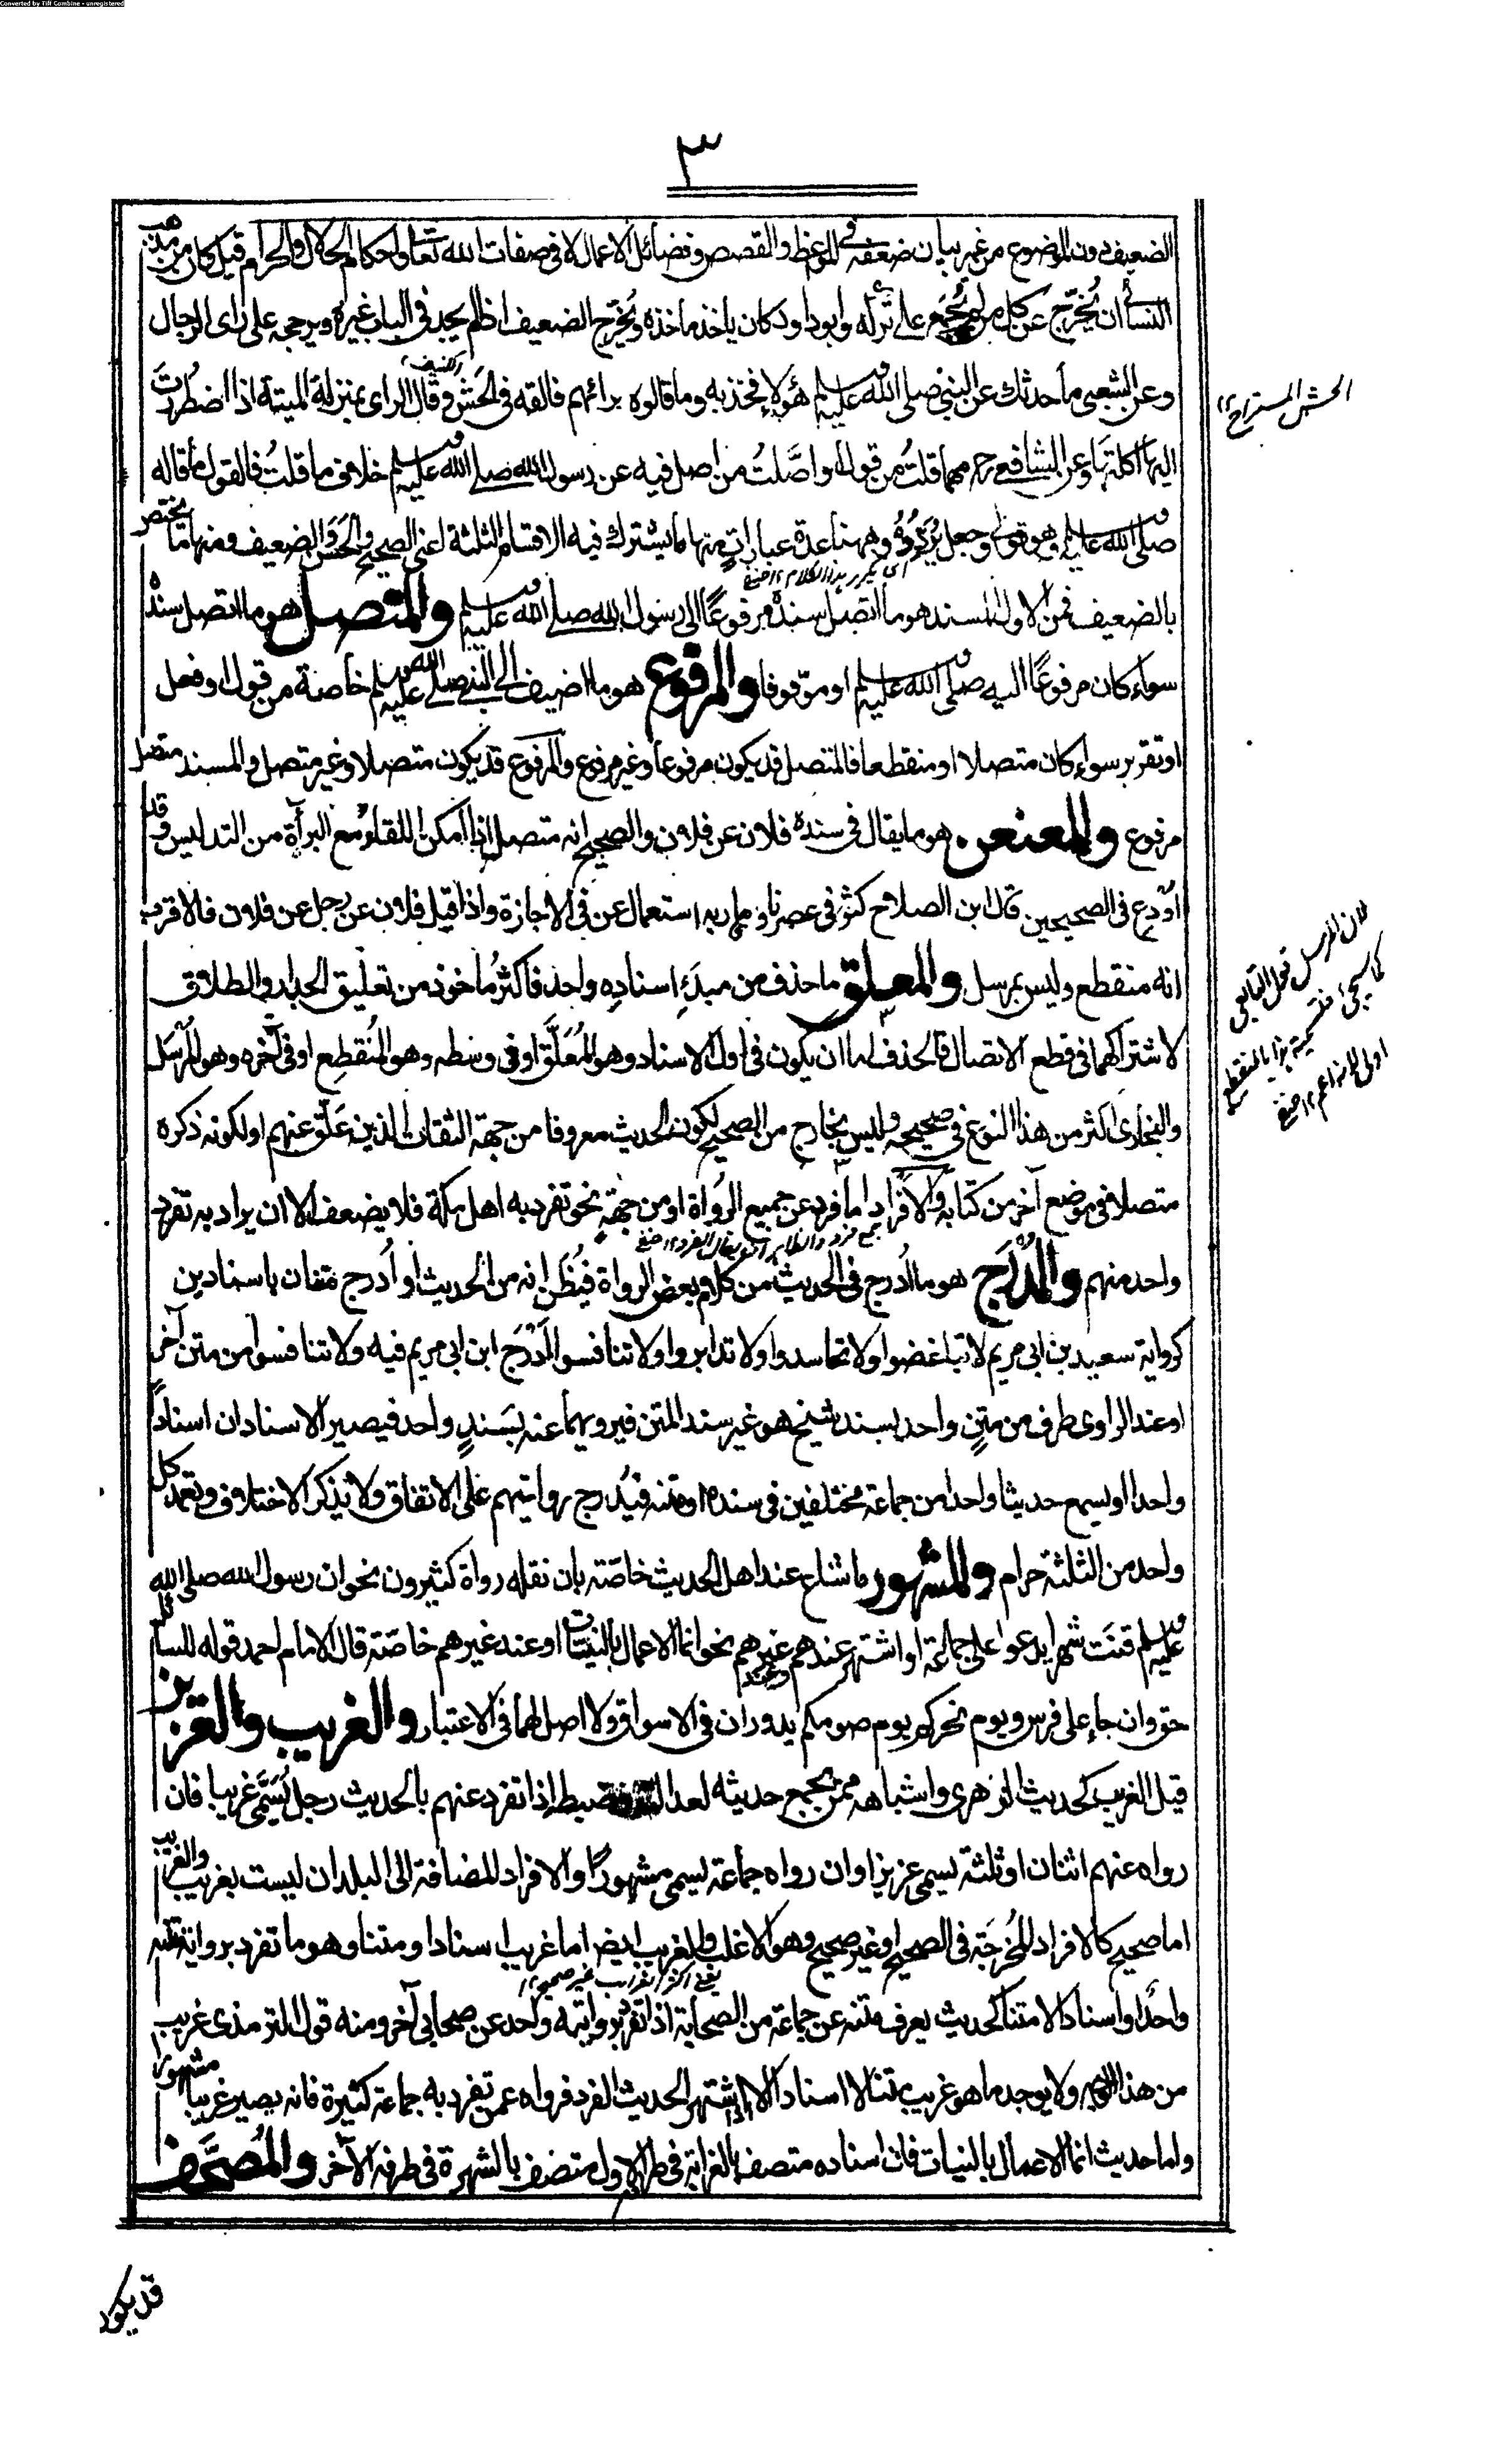 Converted by Tiff Combine - unregistered
٣
الضعيف دون الموضوع من غير بيان ضعفه في المواعظ والقصص وفضائل الاعمال لا في صفات الله تعالى واحكام الحلال والحرام قيل كان من مذهب
النسائي ان يُخرّج عن كل من لم يُجمَع على تركه وابوداود كان ياخذ مأخذه ويُخرّج الضعيف اذا لم يجد في الباب غيره ويرجحه على رأى الرجال
وعن الشعبي ما حدثك عن النبي صلى الله عليه وسلم هؤلاء فخذ به وما قالوه برائهم فالقه في الحَش وقال الرأى بمنزلة الميتة اذا اضطُررت
الحش المستراح ١٢
اليها اكلتها وعن الشافعي رح مهما قلتُ من قول او اصَّلتُ من اصل فيه عن رسول الله صلى الله عليه وسلم خلاف ما قلتُ فالقول ما قاله
صلى الله عليه وسلم وهو قولي وجعل يُرَدِّدُهُ وههنا عدة عبارات منها ما يشترك فيه الاقسام الثلثة اعنى الصحيح والحَسَن والضعيف ومنها ما يختص
اى يكرر هذا الكلام ١٢
بالضعيف فمن الاول المسند هو ما اتصل سنده مرفوعًا الى رسول الله صلى الله عليه وسلم والمتصل هو ما اتصل سنده
سواء كان مرفوعًا اليه صلى الله عليه وسلم او موقوفا والمرفوع هو ما اضيف الى النبي صلى الله عليه وسلم خاصة من قول او فعل
او تقرير سواء كان متصلا او منقطعا فالمتصل قد يكون مرفوعا وغير مرفوع والمرفوع قد يكون متصلا وغير متصل والمسند متصل
مرفوع والمعنعن هو ما يقال في سنده فلان عن فلان والصحيح انه متصل اذا امكن اللقاء مع البرأة من التدليس وقد
اُودع في الصحيحين قال ابن الصلاح كثر في عصرنا وما قاربه استعمال عن في الاجازة واذا قيل فلان عن رجل عن فلان فالاقرب
انه منقطع وليس بمرسل والمعلق ما حذف من مبدَءِ اسناده واحد فاكثرُ ماخوذ من تعليق الجدار والطلاق
لان المرسل قول التابعي
كما سيجئ فتسميته بهذا بالمنقطع
اولى لانه اعم ١٢
لاشتراكهما في قطع الاتصال فالحذف اما ان يكون في اول الاسناد وهو المُعَلَّق او في وسطه وهو المُنقطِع او في آخره وهو المُرسَل
والبخارى اكثر من هذا النوع في صحيحه وليس بخارج من الصحيح لكون الحديث معروفا من جهة الثقات الذين عَلَّق عنهم او لكونه ذكره
متصلا في موضع آخر من كتابه والافراد اما فرد عن جميع الرُواة او من جهةٍ نحو تفرد به اهل مكة فلا يضعف الا ان يراد به تفرد
واحد منهم والمُدرَج هو ما اُدرج في الحديث من كلام بعض الرواة فيُظَن انه من الحديث او اُدرج متنان باسنادين
كرواية سعيد بن ابى مريم لا تباغضوا ولا تحاسدوا ولا تدابروا ولا تنافسوا اَدرَج ابن ابى مريم فيه ولا تنافسوا من متن آخر
او عند الراوى طرف من متنٍ واحد بسند شيخ هو غير سند المتن فيرويهما عنه بسَندٍ واحد فيصير الاسنادان اسنادًا
واحدا او يسمع حديثا واحدا من جماعة مختلفين في سنده او متنه فيُدرج روايتهم على الاتفاق ولا يذكر الاختلاف وتعمد كل
واحد من الثلثة حرام والمشهور ما شاع عند اهل الحديث خاصّة بان نقله رواة كثيرون نحو ان رسول الله صلى الله
عليه وسلم قنَت شهرا يدعوا على جماعة او اشتهر عندهم وعند غيرهم نحو انما الاعمال بالنيّات او عند غيرهم خاصّة قال الامام احمد قوله للسائل
حق وان جاء على فرس ويوم نحركم يوم صومكم يدوران في الاسواق ولا اصل لهما في الاعتبار والغريب والعزيز
قيل الغريب كحديث الزهرى واشباهه ممن يجمع حديثه لعدالته وضبطه اذا تفرد عنهم بالحديث رجل يُسَمَّى غريبا فان
رواه عنهم اثنان او ثلثة يسمى عزيزا وان رواه جماعة يسمى مشهورًا والافراد المضافة الى البلدان ليست بغريب والغريب
اما صحيح كالافراد المُخرَجَة في الصحيح او غير صحيح وهو الاغلب والغريب ايضا اما غريب اسنادا ومتنا وهو ما تفرد برواية متنه
واحد او اسنادًا لا متنا كحديث يعرف متنه عن جماعة من الصحابة اذا تفرد بروايته واحد عن صحابي آخر ومنه قول الترمذى غريب
من هذا الوجه ولا يوجد ما هو غريب متنا لا اسنادا الا اذا اشتهر الحديث الفرد فرواه عمن تفرد به جماعة كثيرة فانه يصير غريبا مشهورا
واما حديث انما الاعمال بالنيات فان اسناده متصف بالغرابة في طرفه الاول متصف بالشهرة في طرفه الآخر والمُصَحَّف
قد يكون